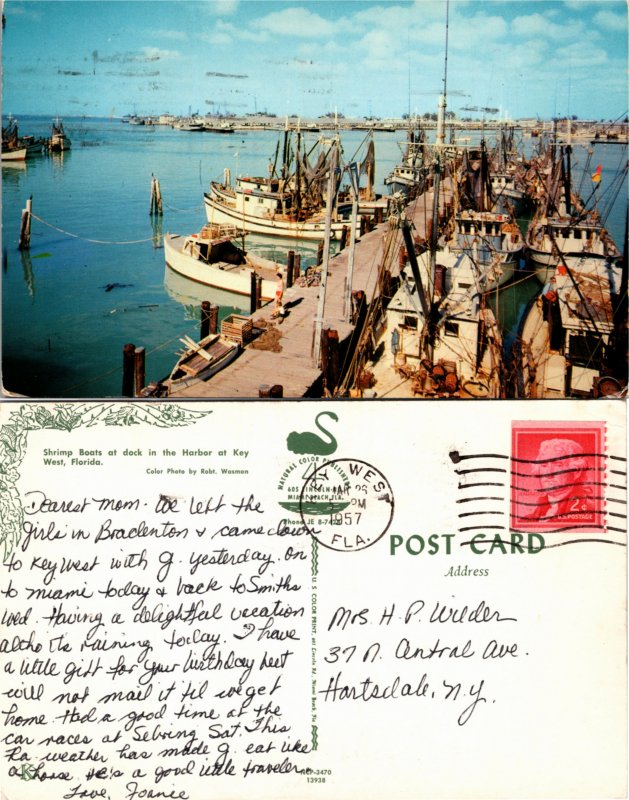 Shrimp Boats at dock in the Harbor at Key
West, Florida.
Color Photo by Robt. Wasman
NATURAL COLOR
605 LINCOLN
MIAMI BEACH, FLA.
Phone JE 8-7
KEY WEST
MAR 26
PM
1957
FLA.
2¢
U.S. POSTAGE
POST CARD
Address
Dearest Mom. We left the
girls in Bradenton & came down
to Key West with G. yesterday. On
to Miami today & back to Smiths
Wed. Having a delightful vacation
altho its raining today. I have
a little gift for your birthday but
will not mail it til we get
home. Had a good time at the
car races at Sebring Sat. This
Fla weather has made G. eat like
a horse. He's a good little traveler.
Love,
Mrs. H. P. Wieder
37 N. Central Ave.
Hartsdale, N.Y.
U. S. COLOR PRINT, 605 Lincoln Rd., Miami Beach, Fla.
K
NCP-3470
13938